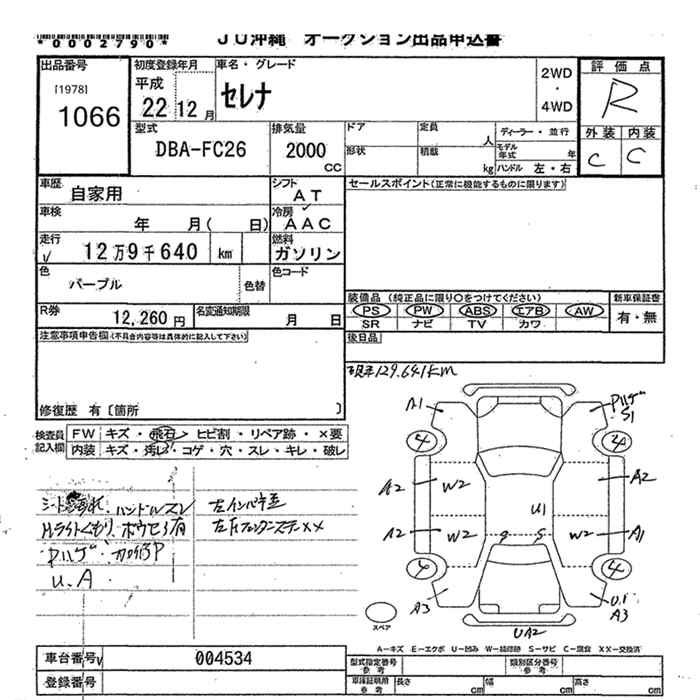 *0002790*
JU沖縄 オークション出品申込書
出品番号
[1978]
1066
初度登録年月
平成
22 12 月
車名・グレード
セレナ
2WD
・
4WD
評価点
R
外装 内装
C C
型式
DBA-FC26
排気量
2000
CC
ドア
形状
定員
人
積載
kg
ディーラー・並行
モデル年式 年
ハンドル 左・右
車歴
自家用
シフト
AT
セールスポイント(正常に機能するものに限ります)
車検
年 月( 日)
冷房
AAC
走行
12万9千640 km
燃料
ガソリン
色
パープル
色替
色コード
R券
12,260 円
名変通知期限
月 日
装備品 (純正品に限り○をつけてください)
PS PW ABS エアB AW
SR ナビ TV カワ
新車保証書
有・無
後日品
注意事項申告欄(不具合内容等は具体的に記入して下さい)
修復歴 有〔箇所 〕
現走129.641KM
検査員
記入欄
FW キズ・飛石・ヒビ割・リペア跡・×要
内装 キズ・汚レ・コゲ・穴・スレ・キレ・破レ
ハンドルスレ
Hライトくもり
有
Pハゲ・加修P
U.A
左インパネ歪
左Fフェンダーステー××
A1
Pハゲ
S1
4
4
A2
W2
A2
U1
A2
W2
W2
A1
S
4
4
A3
U1
A3
UA2
スペア
A−キズ E−エクボ U−凹み W−補修跡 S−サビ C−腐食 XX−交換済
車台番号 004534
登録番号
型式指定番号
参考
類別区分番号
参考
車庫証明用
参考
長さ cm
幅 cm
高さ cm